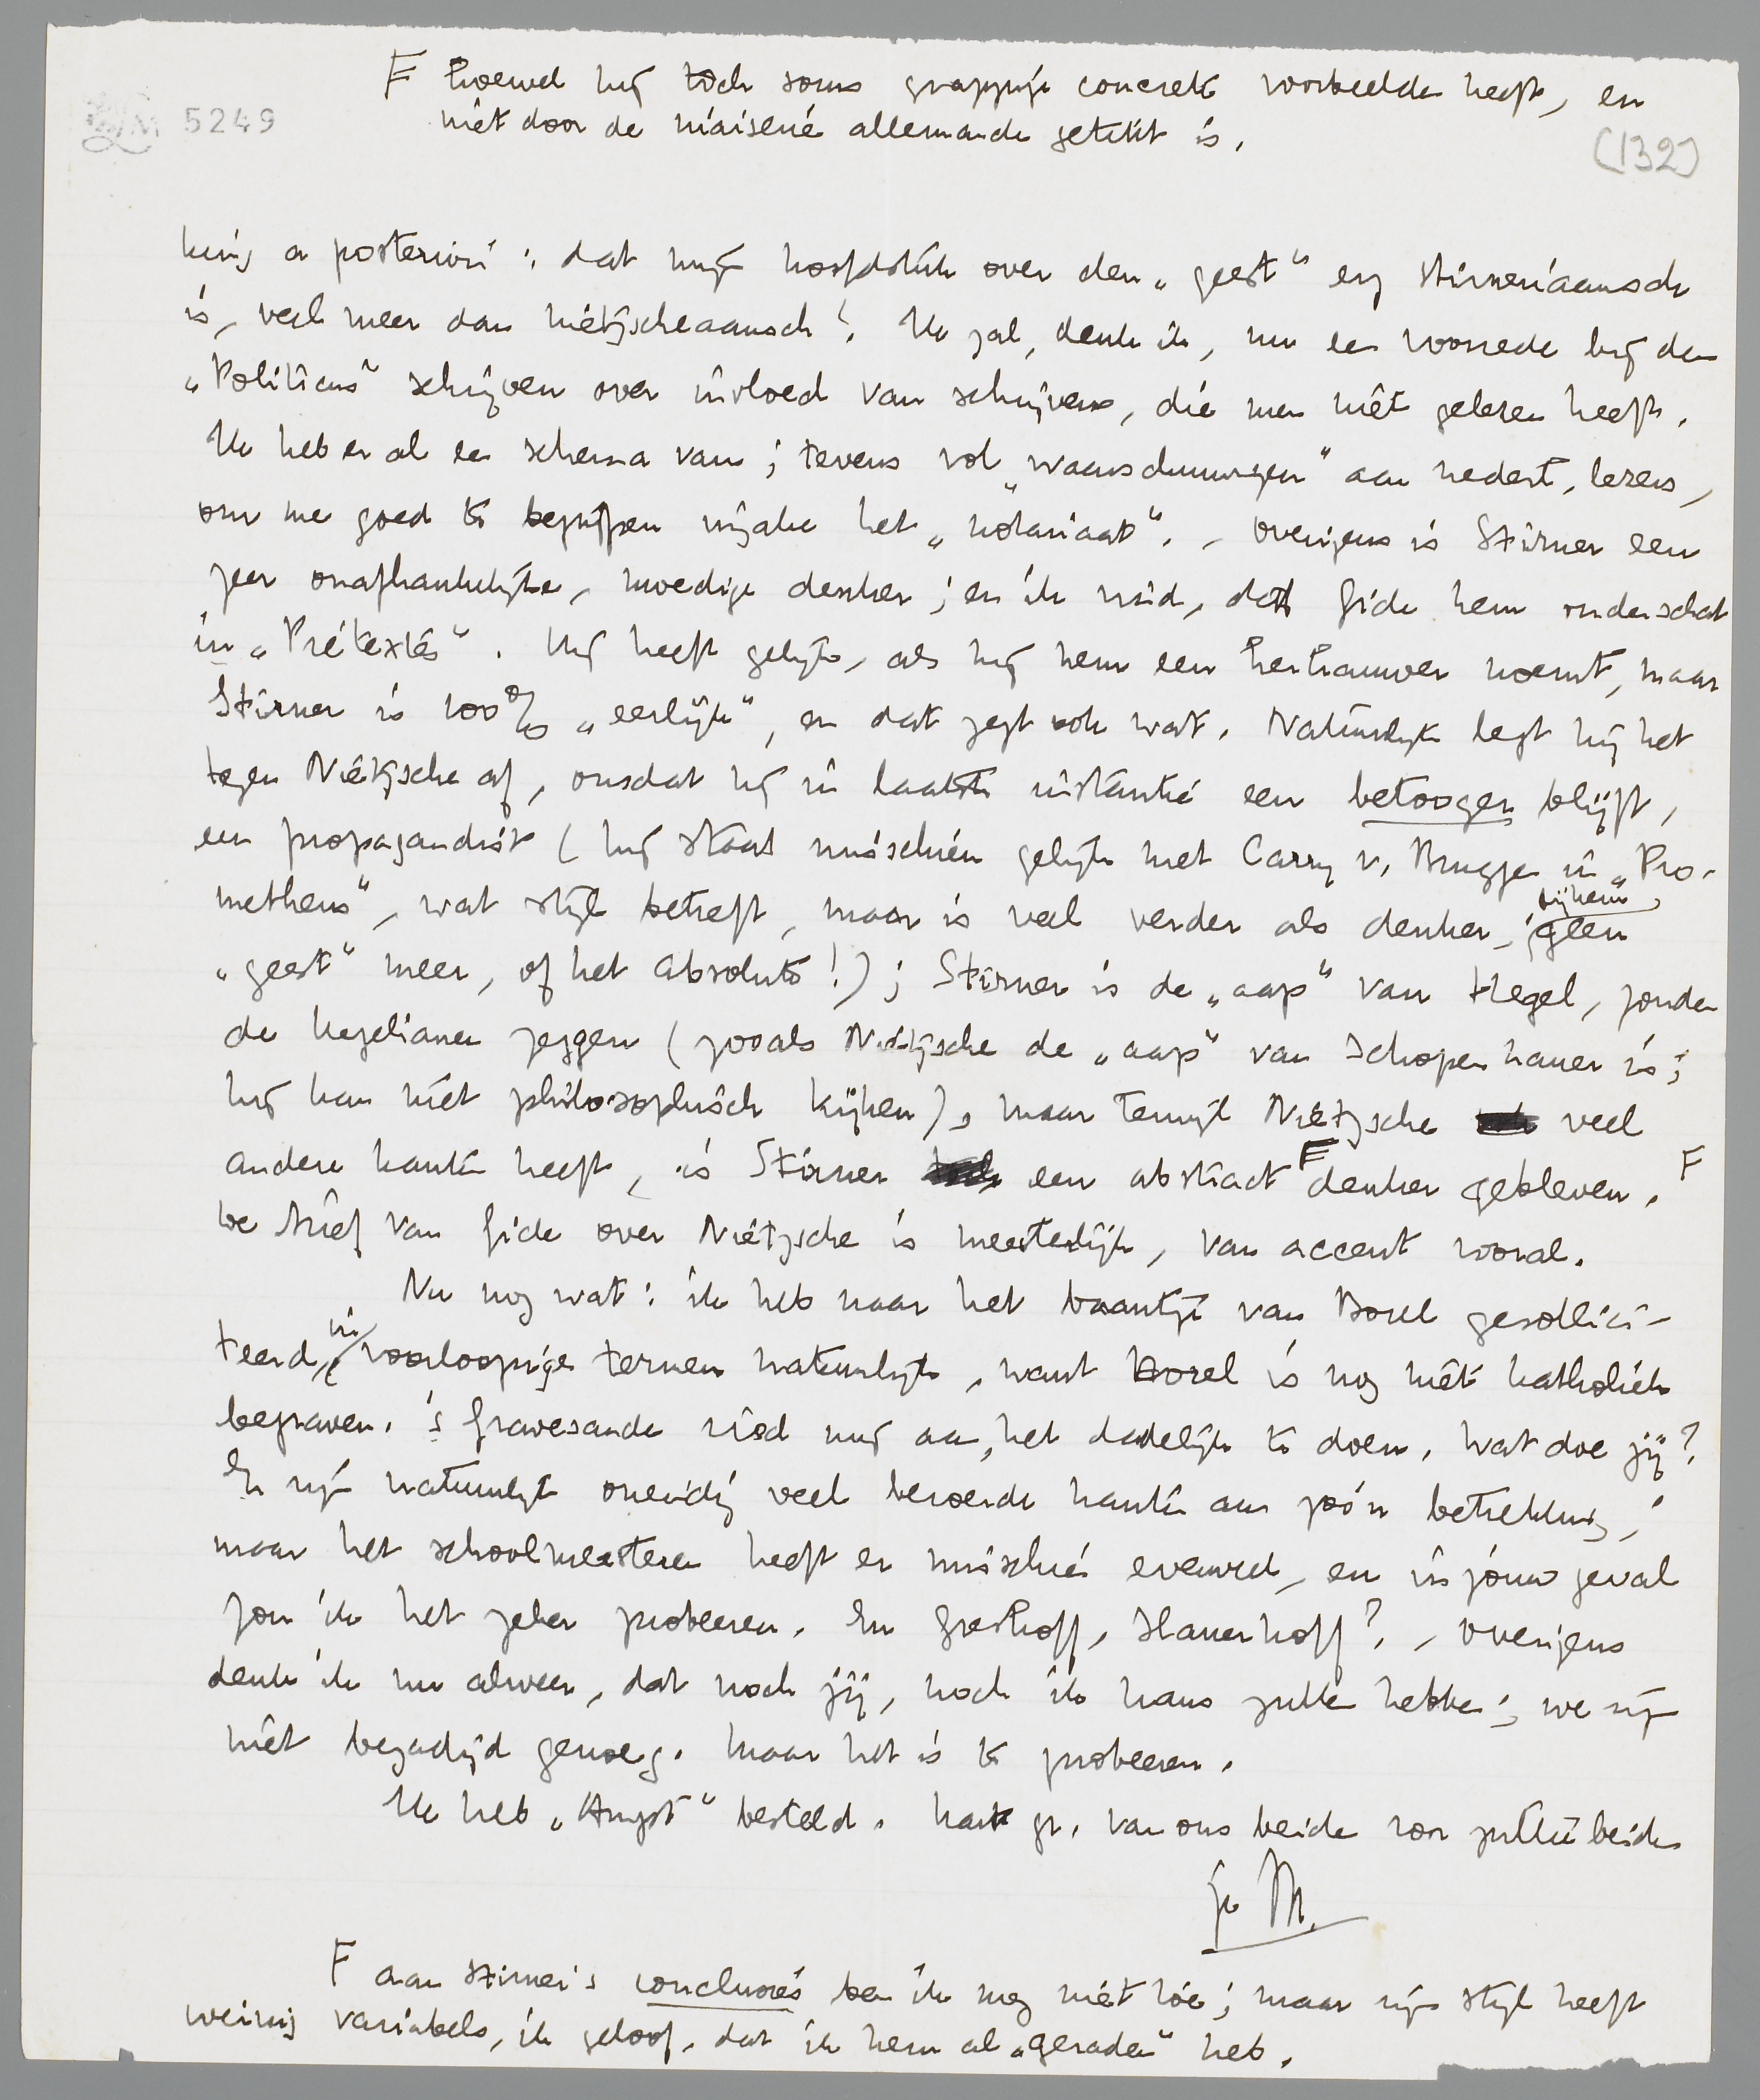 F hoewel hij toch soms grappige concrete voorbeelden heeft, en
niet door de niaiserie allemande getikt is.
5249
(132)
king a posteriori: dat mijn hoofdstuk over den „geest" erg Stirneriaansch
is, veel meer dan Nietzscheaansch! Ik zal, denk ik, nu een voorrede bij den
„Politicus" schrijven over invloed van schrijvers, die men niet gelezen heeft.
Ik heb er al een schema van; tevens vol „waarschuwingen" aan nederl. lezers,
om me goed te begrijpen inzake het „notariaat". - Overigens is Stirner een
zeer onafhankelijke, moedige denker; en ik vind, dat Gide hem onderschat
in „Prétextes". Hij heeft gelijk, als hij hem een herkauwer noemt, maar
Stirner is 100% „eerlijk", en dat zegt ook wat. Natuurlijk legt hij het
tegen Nietzsche af, omdat hij in laatste instantie een betooger blijft,
een propagandist (hij staat misschien gelijk met Carry v. Bruggen in „Pro-
metheus", wat stijl betreft, maar is veel verder als denker; bij hem geen
„geest" meer, of het Absolute!); Stirner is de „aap" van Hegel, zouden
de hegelianen zeggen (zooals Nietzsche de „aap" van Schopenhauer is;
hij kan niet philosophisch kijken), maar terwijl Nietzsche veel
andere kanten heeft, is Stirner een abstract F denker gebleven. F
De brief van Gide over Nietzsche is meesterlijk, van accent vooral.
Nu nog wat: ik heb naar het baantje van Borel gesollici-
teerd, in voorloopige termen natuurlijk, want Borel is nog niet katholiek
begraven. 's Gravesande ried mij aan, het dadelijk te doen. Wat doe jij?
Er zijn natuurlijk oneindig veel beroerde kanten aan zóó'n betrekking,
maar het schoolmeesteren heeft er misschien evenveel, en in jouw geval
zou ik het zeker probeeren. En Greshoff, Slauerhoff? - Overigens
denk ik nu alweer, dat noch jij, noch ik kans zullen hebben; we zijn
niet bezadigd genoeg. Maar het is te probeeren.
Ik heb „Angst" besteld. Hart. gr. van ons beiden voor jullie beiden
je M.
F aan Stirner's conclusies ben ik nog niet toe; maar zijn stijl heeft
weinig variabels, ik geloof, dat ik hem al „geraden" heb.